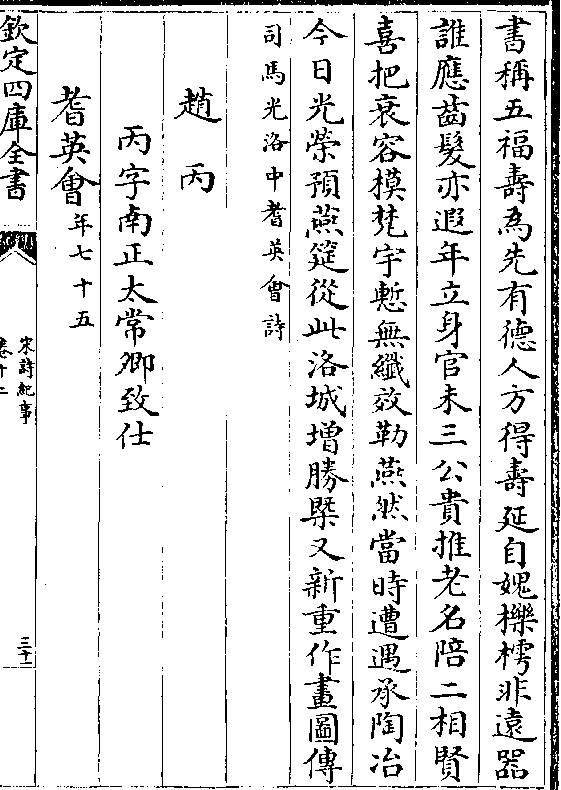 書稱五福壽為先有德人方得壽延自媿櫟樗非遠器
誰應齒髮亦遐年立身官未三公貴推老名陪二相賢
喜把衰容模梵宇慙無纖效勒燕然當時遭遇承陶冶
今日光榮預燕筵從此洛城增勝槩又新重作畫圖傳
司馬光洛中耆英會詩
趙丙
丙字南正太常卿致仕
耆英會年七十五
欽定四庫全書
宋詩紀事
卷十二
三十一